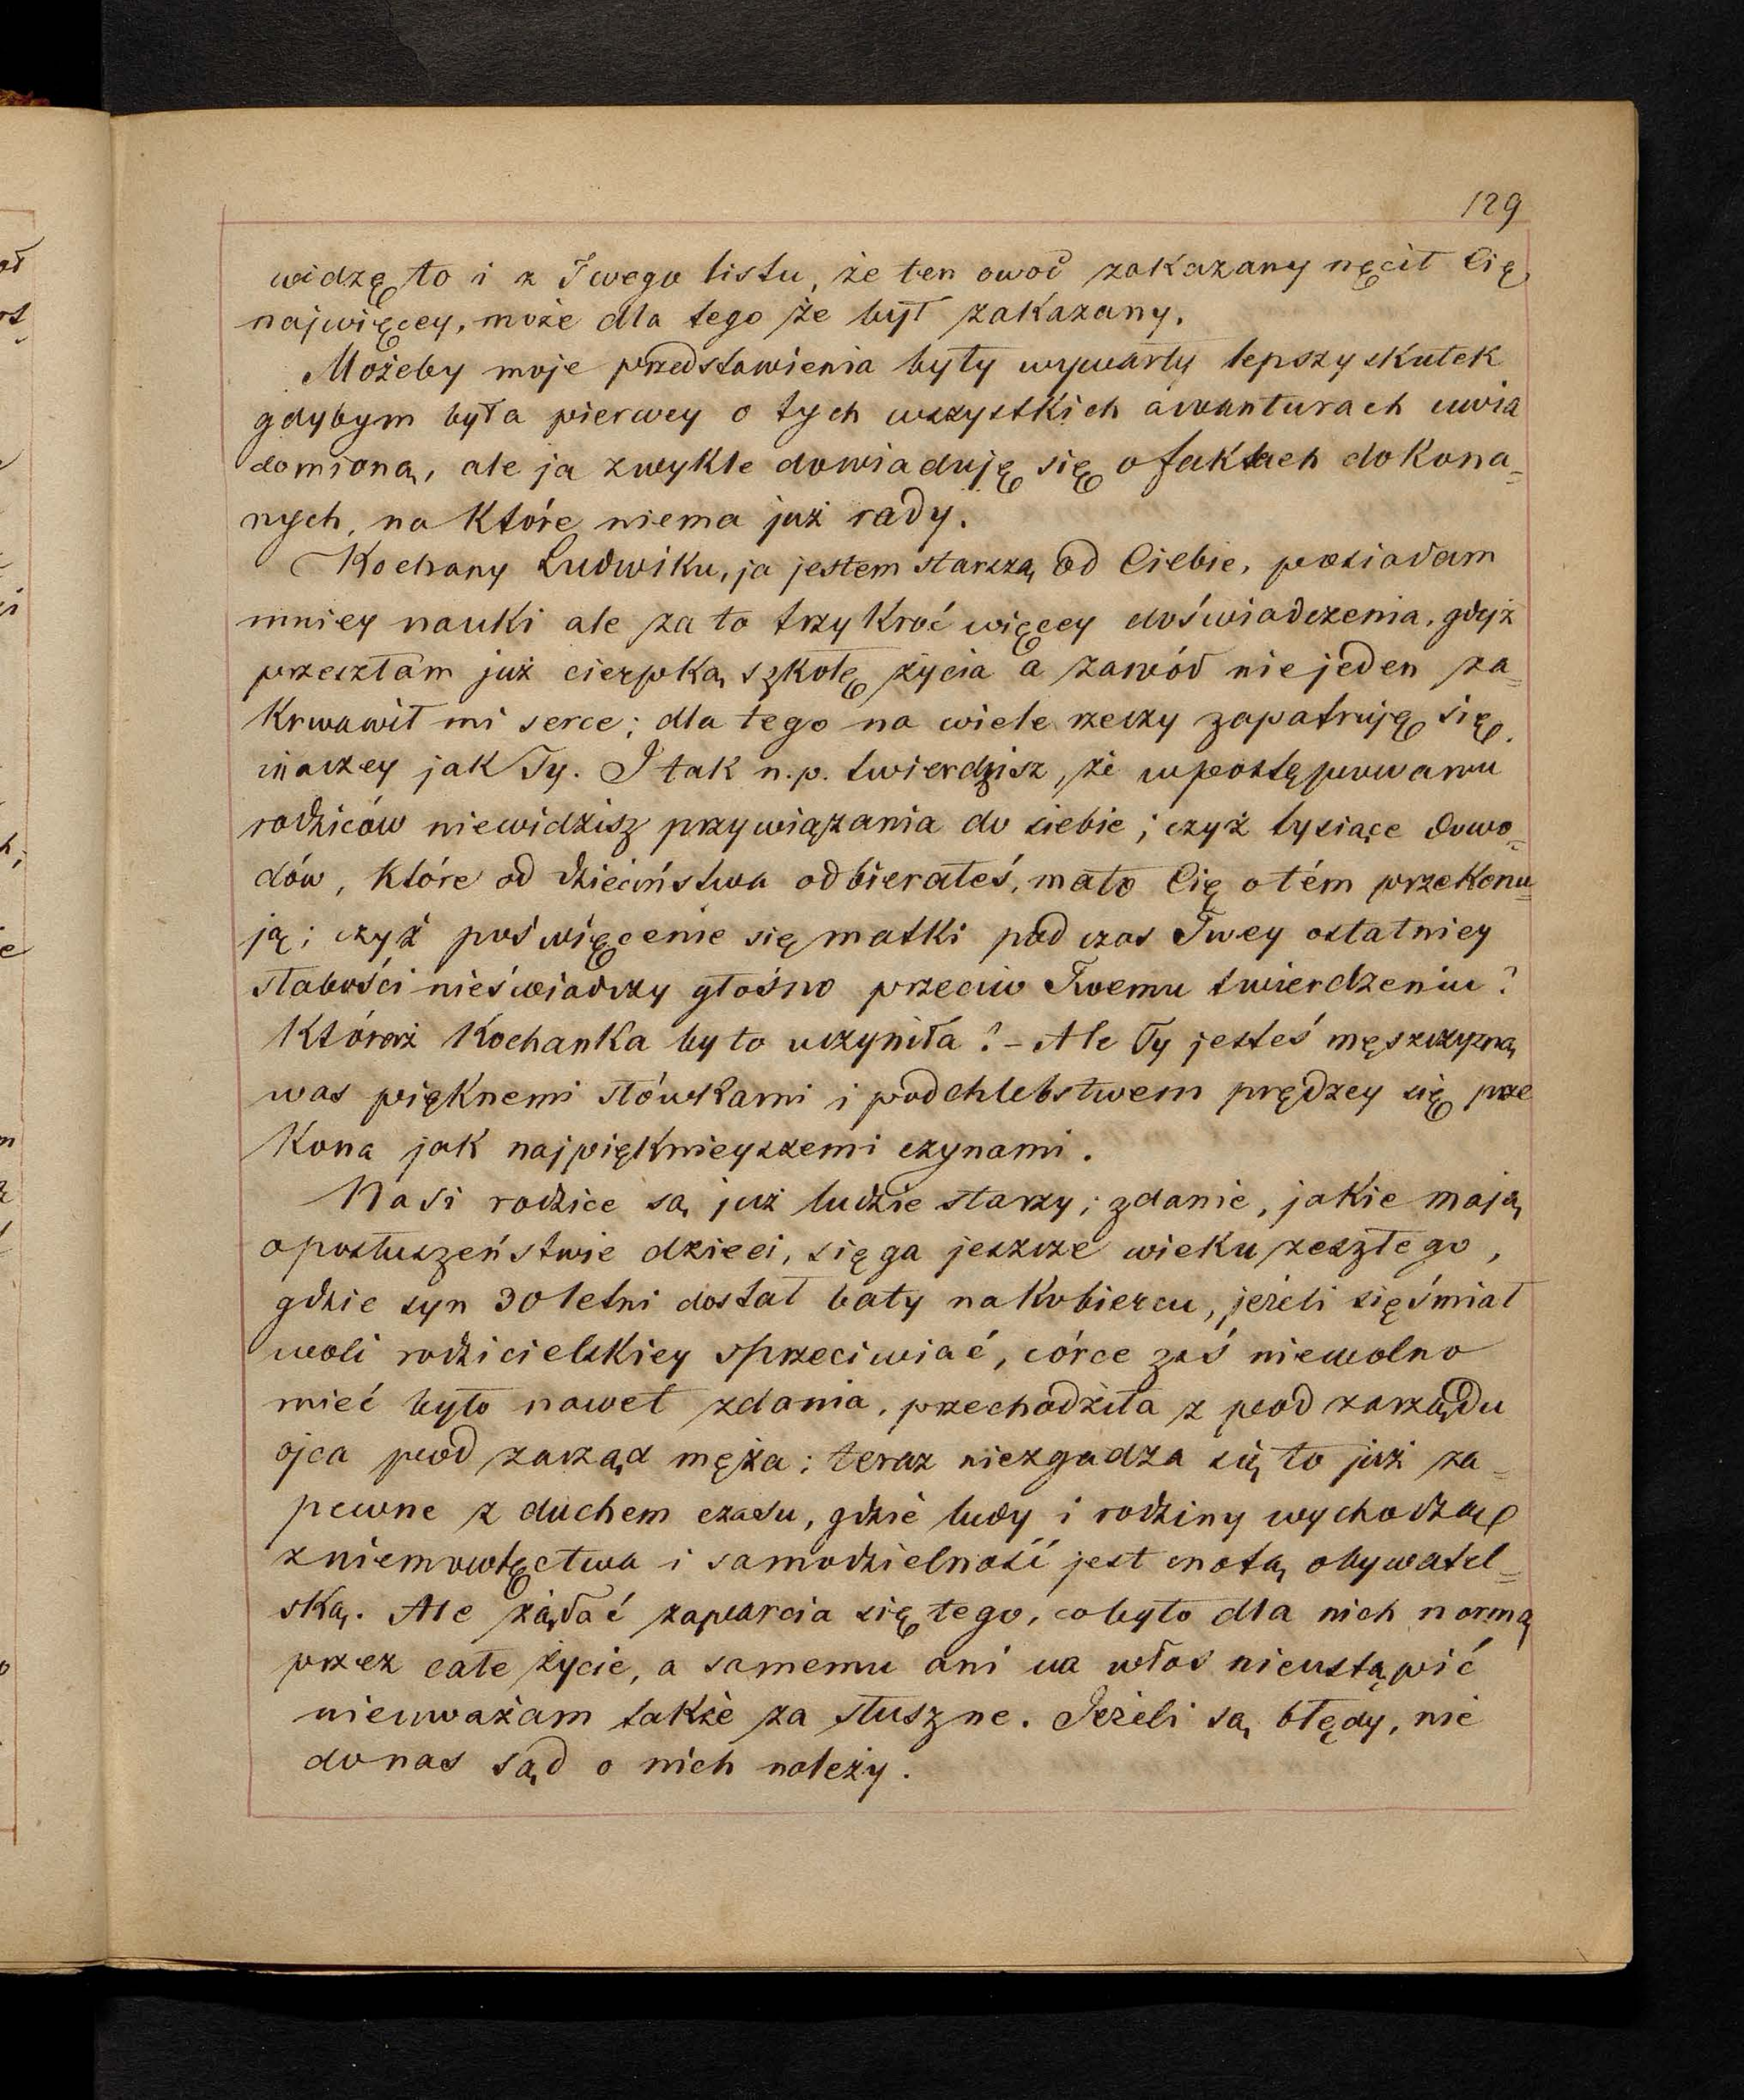 129
widzę to i z Twego listu, że ten owoć zakazany nęcił Cię
najwięcey, może dla tego że był zakazany.
Możeby moje przedstawienia były wywarły lepszy skutek
gdybym była pierwey o tych wszystkich awanturach uwia
domioną, ale ja zwykle dowiaduję się o faktach dokona=
nych, na które niema już rady.
Kochany Ludwiku, ja jestem starszą od Ciebie, posiadam
mniey nauki ale za to trzykroć więcey doświadczenia, gdyż
przeszłam już cierpką szkołę życia a zawód niejeden za=
krwawił mi serce; dla tego na wiele rzeczy zapatruję się
inaczey jak Ty. I tak n.p. twierdzisz, że w postępowaniu
rodziców niewidzisz przywiązania do siebie; czyż tysiące dowo=
dów, które od dzieciństwa odbierałeś, mało Cię o tém przekonu=
ją; czyż poświęcenie się matki podczas Twey ostatniey
słabości nieświadczy głośno przeciw Twemu twierdzeniu?
Któraż kochanka by to uczyniła? - Ale Ty jesteś męszczyzną
was pięknemi słówkami i podchlebstwem prędzey się prze
kona jak najpięknieyszemi czynami.
Nasi rodzice są już ludzie starzy; zdanie, jakie mają
o posłuszeństwie dzieci, sięga jeszcze wieku zeszłego,
gdzie syn 30 letni dostał baty na kobiercu, jeżeli się śmiał
woli rodzicielskiey sprzeciwiać, córce zaś niewolno
mieć było nawet zdania, przechodziła z pod zarządu
ojca pod zarząd męża; teraz niezgadza się to już za=
pewne z duchem czasu, gdzie ludy i rodziny wychodzą
z niemowlęctwa i samodzielność jest cnotą obywatel=
ską. Ale żądać zaparcia się tego, co było dla nich normą
przez całe życie, a samemu ani na włos nieustąpić
nieuważam także za słuszne. Jeżeli są błędy, nie
do nas sąd o nich należy.